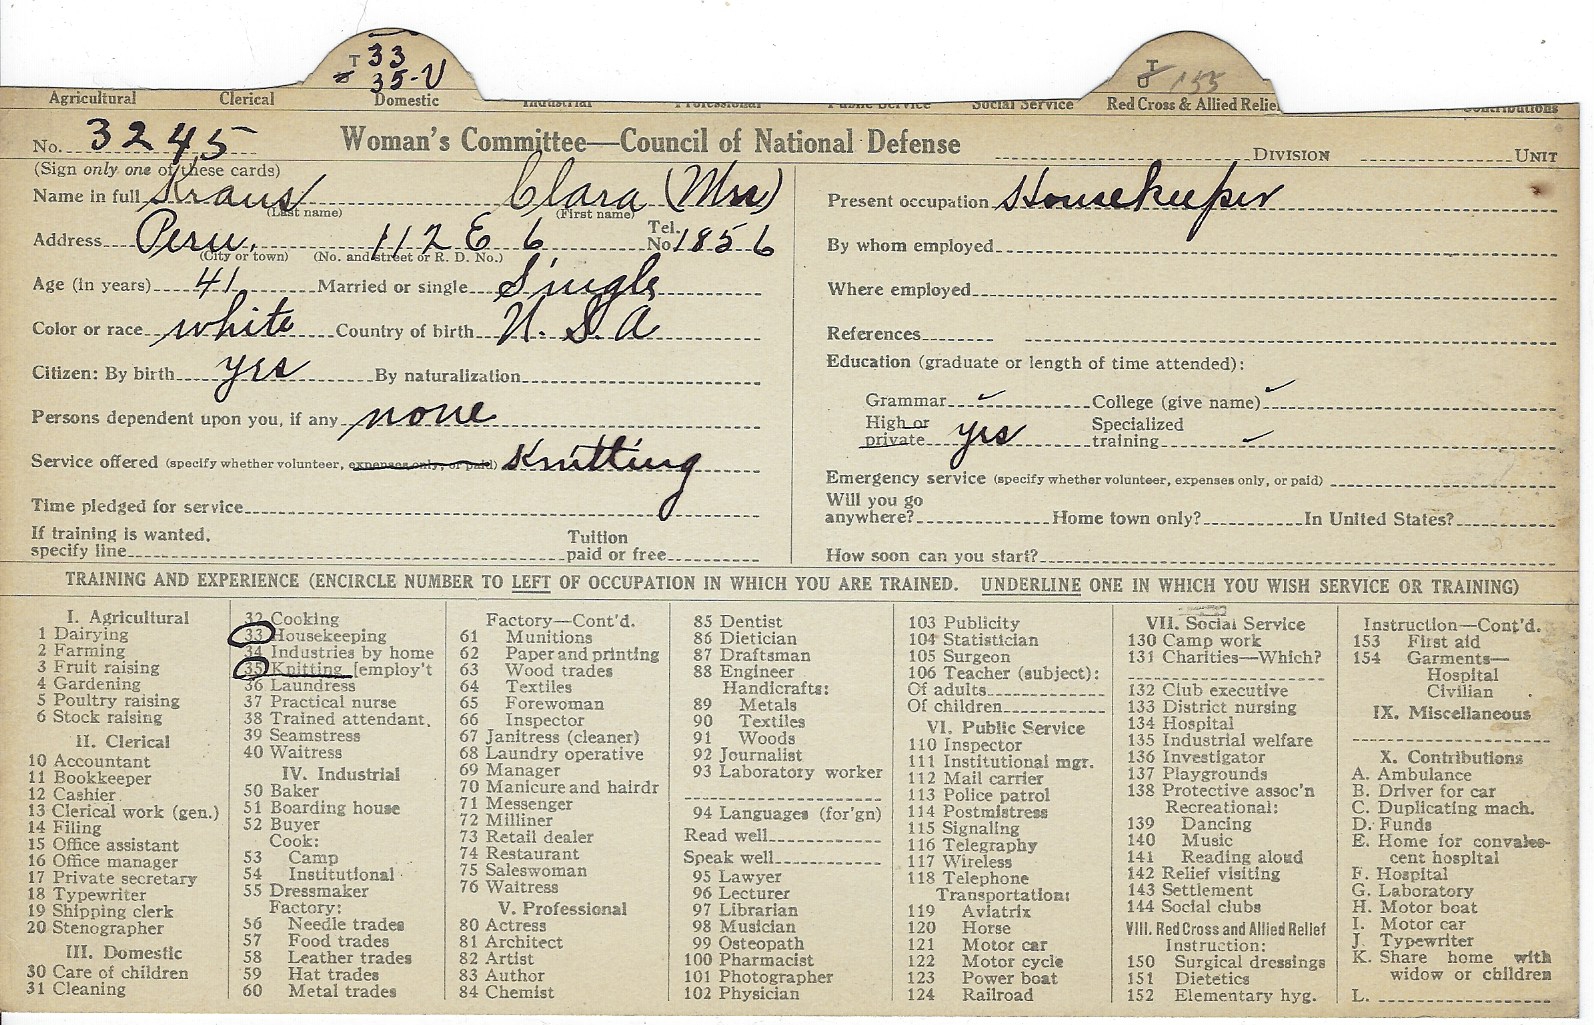 T 33
U 35-V
T U 155
Agricultural Clerical Domestic Industrial Professional Public Service Social Service Red Cross & Allied Relie Contributions
No. 3245 Woman's Committee—Council of National Defense DIVISION UNIT
(Sign only one of these cards)
Name in full Kraus Clara (Mrs)
(Last name) (First name)
Address Peru, 112 E 6 Tel. No 1856
(City or town) (No. and street or R. D. No.)
Age (in years) 41 Married or single Single
Color or race white Country of birth U. S. A
Citizen: By birth yes By naturalization
Persons dependent upon you, if any none
Service offered (specify whether volunteer, expenses only, or paid) Knitting
Time pledged for service
If training is wanted, specify line Tuition paid or free
Present occupation Housekeeper
By whom employed
Where employed
References
Education (graduate or length of time attended):
Grammar ✓ College (give name) ✓
High or private yes Specialized training ✓
Emergency service (specify whether volunteer, expenses only, or paid)
Will you go anywhere? Home town only? In United States?
How soon can you start?
TRAINING AND EXPERIENCE (ENCIRCLE NUMBER TO LEFT OF OCCUPATION IN WHICH YOU ARE TRAINED. UNDERLINE ONE IN WHICH YOU WISH SERVICE OR TRAINING)
I. Agricultural
1 Dairying
2 Farming
3 Fruit raising
4 Gardening
5 Poultry raising
6 Stock raising
II. Clerical
10 Accountant
11 Bookkeeper
12 Cashier
13 Clerical work (gen.)
14 Filing
15 Office assistant
16 Office manager
17 Private secretary
18 Typewriter
19 Shipping clerk
20 Stenographer
III. Domestic
30 Care of children
31 Cleaning
32 Cooking
33 Housekeeping
34 Industries by home
35 Knitting [employ't
36 Laundress
37 Practical nurse
38 Trained attendant.
39 Seamstress
40 Waitress
IV. Industrial
50 Baker
51 Boarding house
52 Buyer
Cook:
53 Camp
54 Institutional
55 Dressmaker
Factory:
56 Needle trades
57 Food trades
58 Leather trades
59 Hat trades
60 Metal trades
Factory—Cont'd.
61 Munitions
62 Paper and printing
63 Wood trades
64 Textiles
65 Forewoman
66 Inspector
67 Janitress (cleaner)
68 Laundry operative
69 Manager
70 Manicure and hairdr
71 Messenger
72 Milliner
73 Retail dealer
74 Restaurant
75 Saleswoman
76 Waitress
V. Professional
80 Actress
81 Architect
82 Artist
83 Author
84 Chemist
85 Dentist
86 Dietician
87 Draftsman
88 Engineer
Handicrafts:
89 Metals
90 Textiles
91 Woods
92 Journalist
93 Laboratory worker
94 Languages (for'gn)
Read well
Speak well
95 Lawyer
96 Lecturer
97 Librarian
98 Musician
99 Osteopath
100 Pharmacist
101 Photographer
102 Physician
103 Publicity
104 Statistician
105 Surgeon
106 Teacher (subject):
Of adults
Of children
VI. Public Service
110 Inspector
111 Institutional mgr.
112 Mail carrier
113 Police patrol
114 Postmistress
115 Signaling
116 Telegraphy
117 Wireless
118 Telephone
Transportation:
119 Aviatrix
120 Horse
121 Motor car
122 Motor cycle
123 Power boat
124 Railroad
VII. Social Service
130 Camp work
131 Charities—Which?
132 Club executive
133 District nursing
134 Hospital
135 Industrial welfare
136 Investigator
137 Playgrounds
138 Protective assoc'n
Recreational:
139 Dancing
140 Music
141 Reading aloud
142 Relief visiting
143 Settlement
144 Social clubs
VIII. Red Cross and Allied Relief
Instruction:
150 Surgical dressings
151 Dietetics
152 Elementary hyg.
Instruction—Cont'd.
153 First aid
154 Garments—
Hospital
Civilian
IX. Miscellaneous
X. Contributions
A. Ambulance
B. Driver for car
C. Duplicating mach.
D. Funds
E. Home for convales-
cent hospital
F. Hospital
G. Laboratory
H. Motor boat
I. Motor car
J. Typewriter
K. Share home with
widow or children
L.